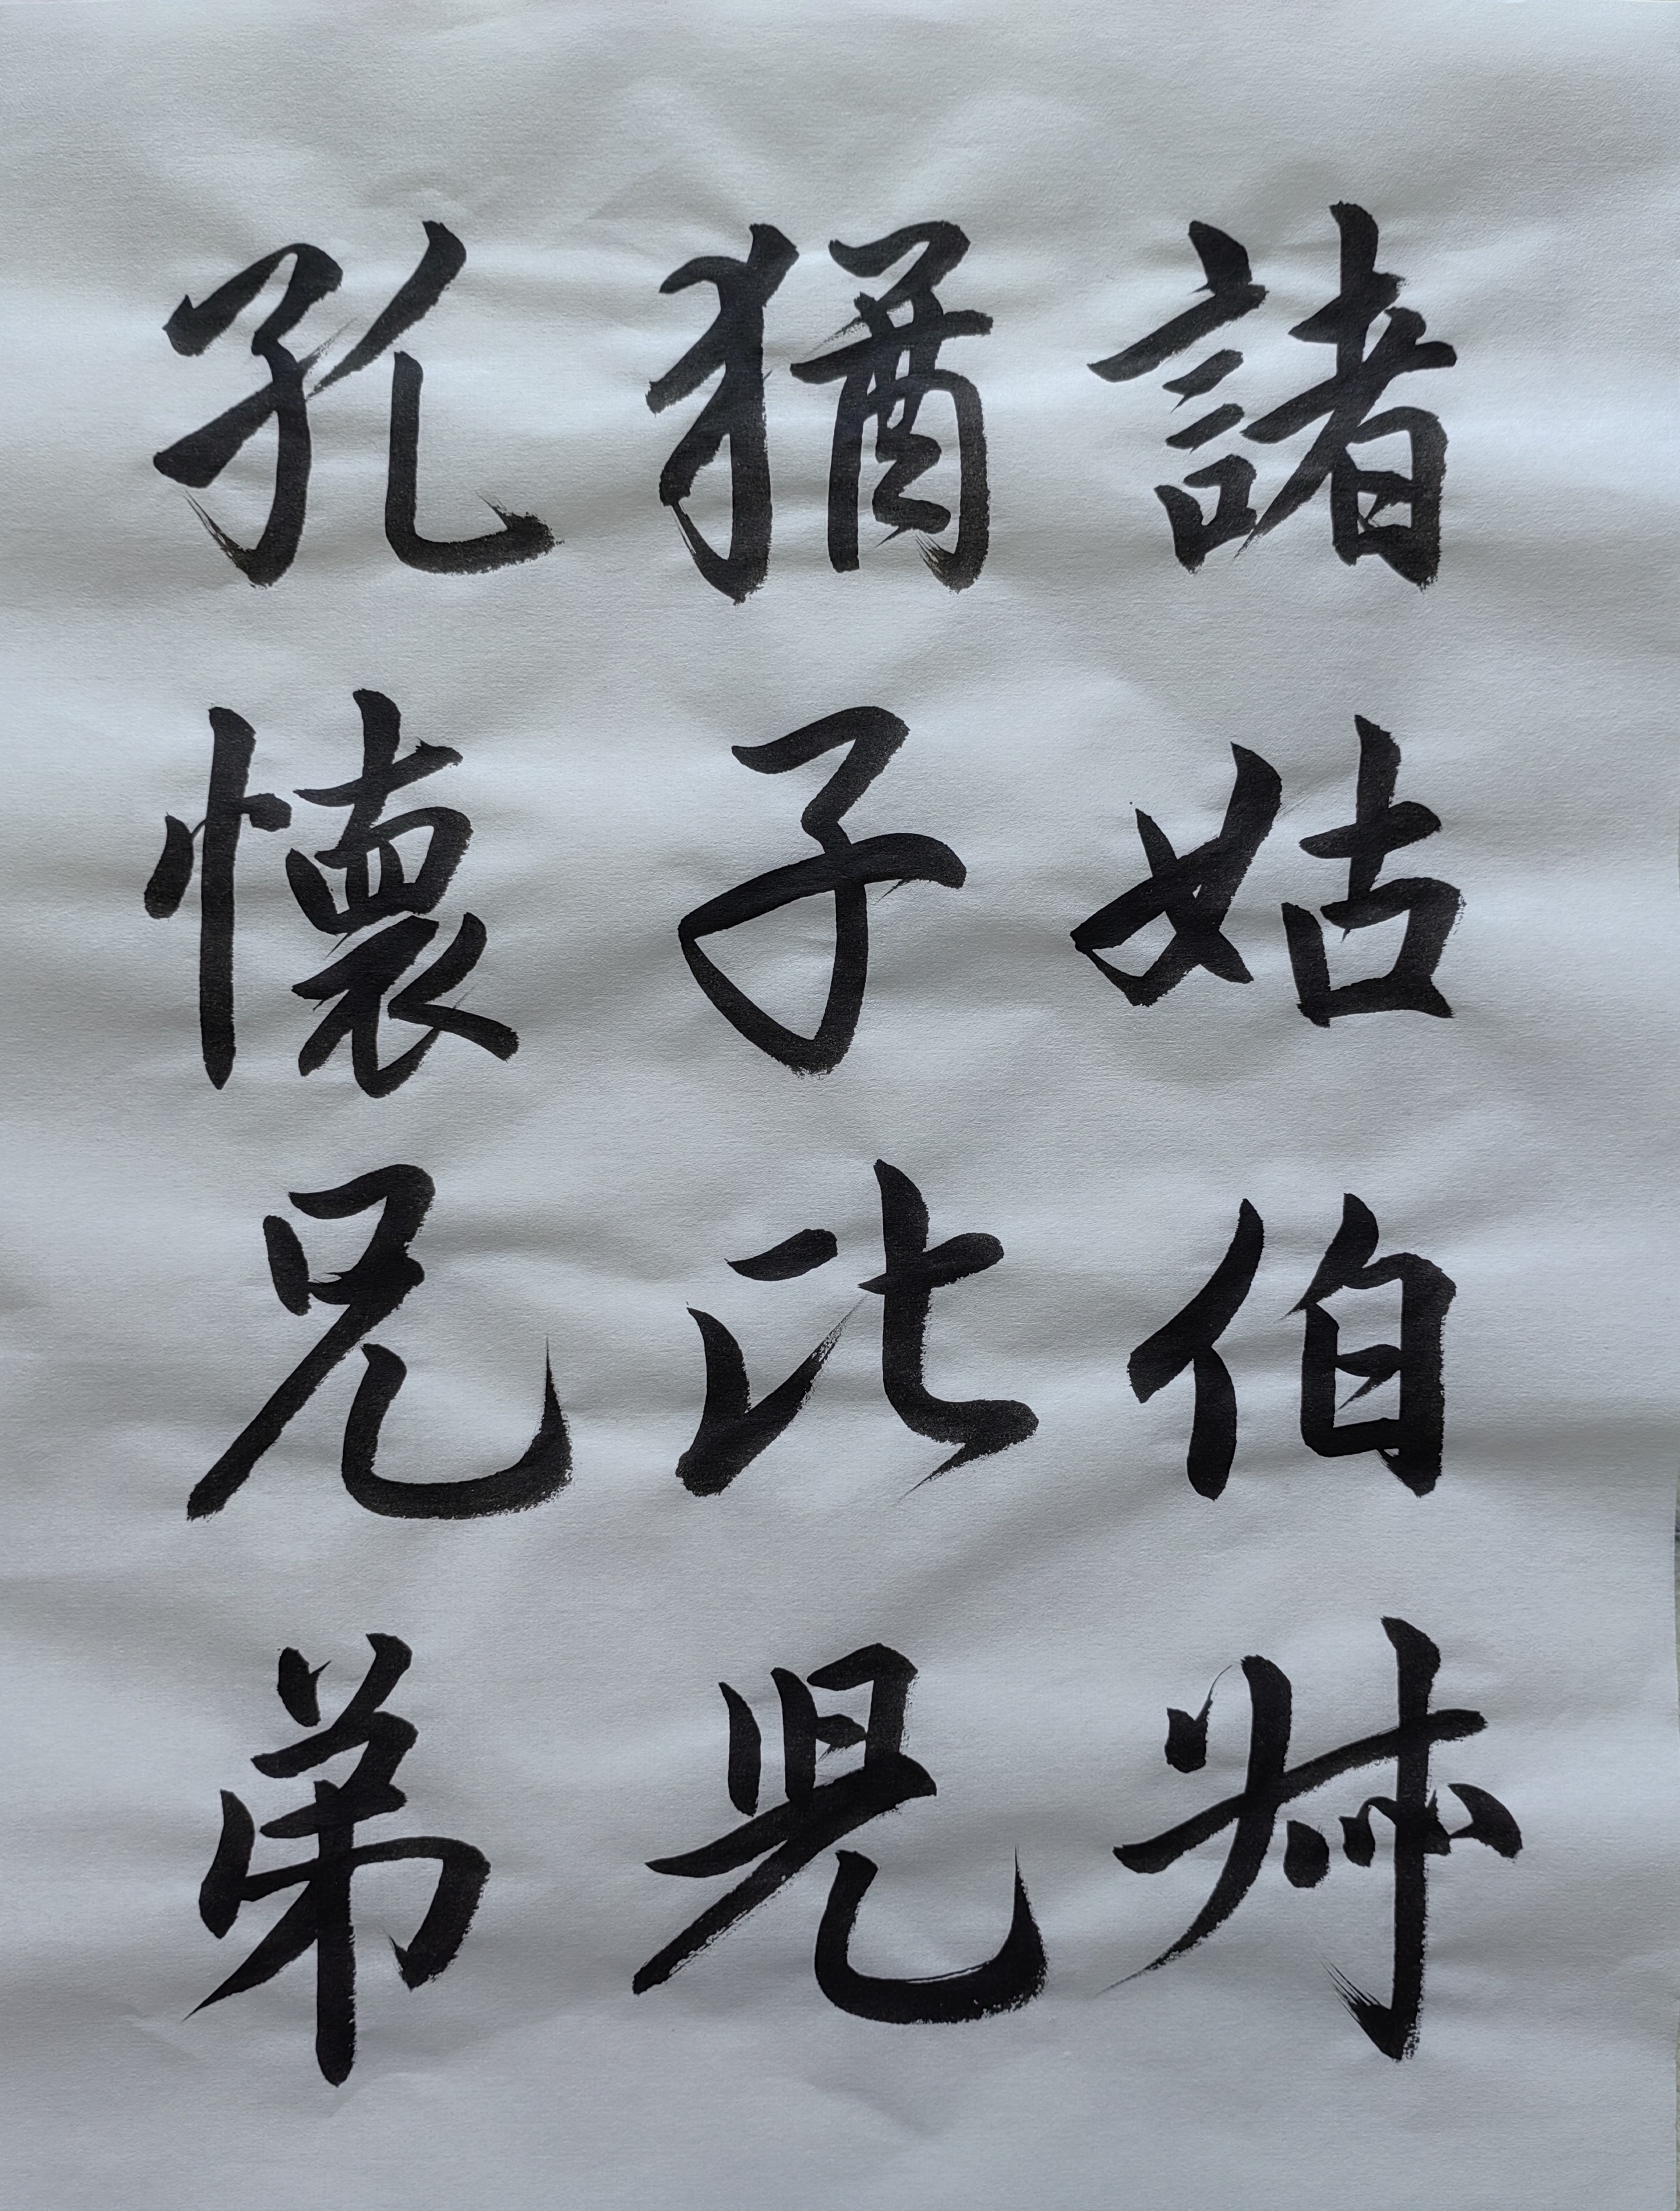 諸姑伯叔
猶子比兒
孔懷兄弟